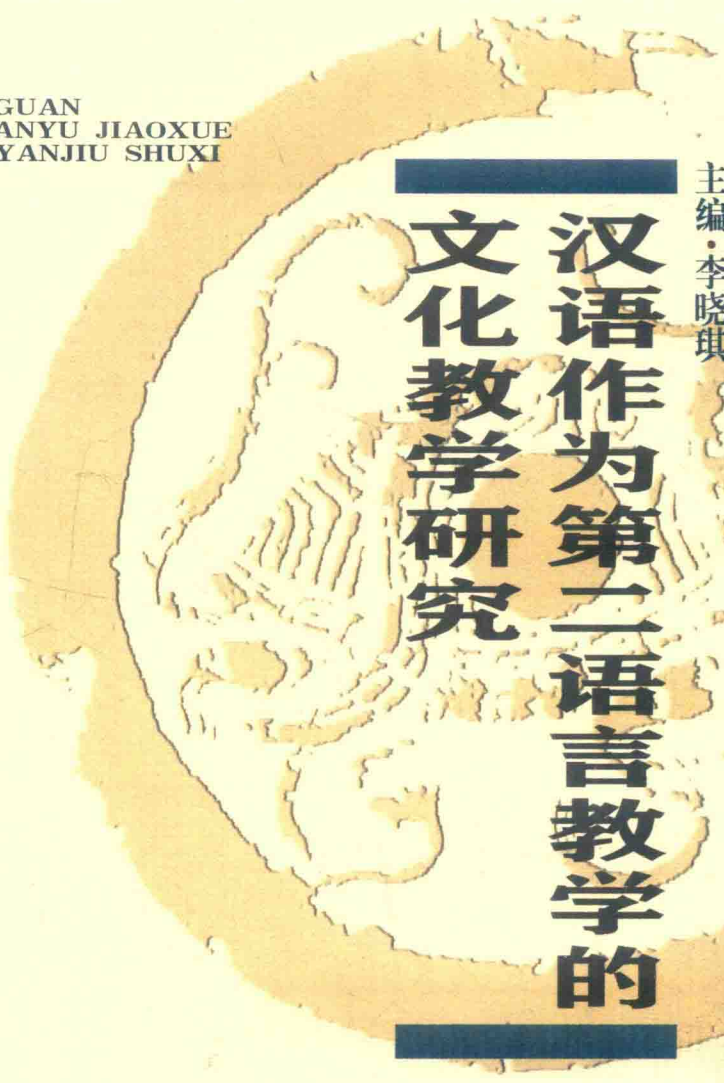 GUAN
ANYU JIAOXUE
YANJIU SHUXI
主编·李晓琪
汉语作为第二语言教学的
文化教学研究